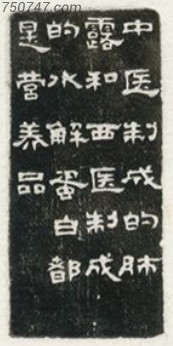 750747.com
中医制成的肽
露和西医制成
的水解蛋白都
是营养品